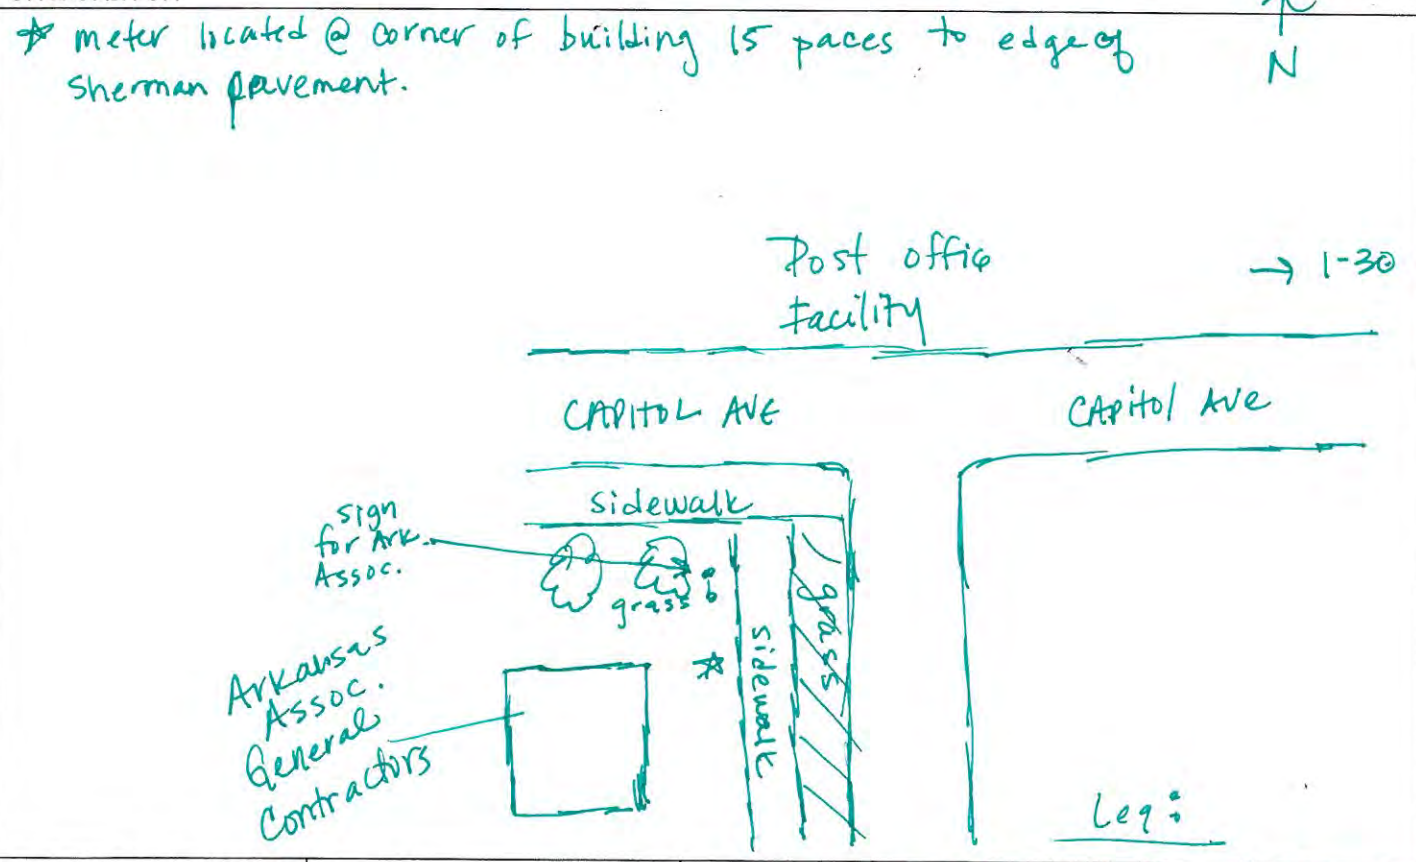 ☆ meter located @ corner of building 15 paces to edge of
Sherman pavement.
N
Post office
Facility
→ I-30
CAPITOL AVE
CAPitol AVe
Sidewalk
sign
for Ark.
Assoc.
grass
grass
Sidewalk
Arkansas
Assoc.
General
Contractors
Leq: